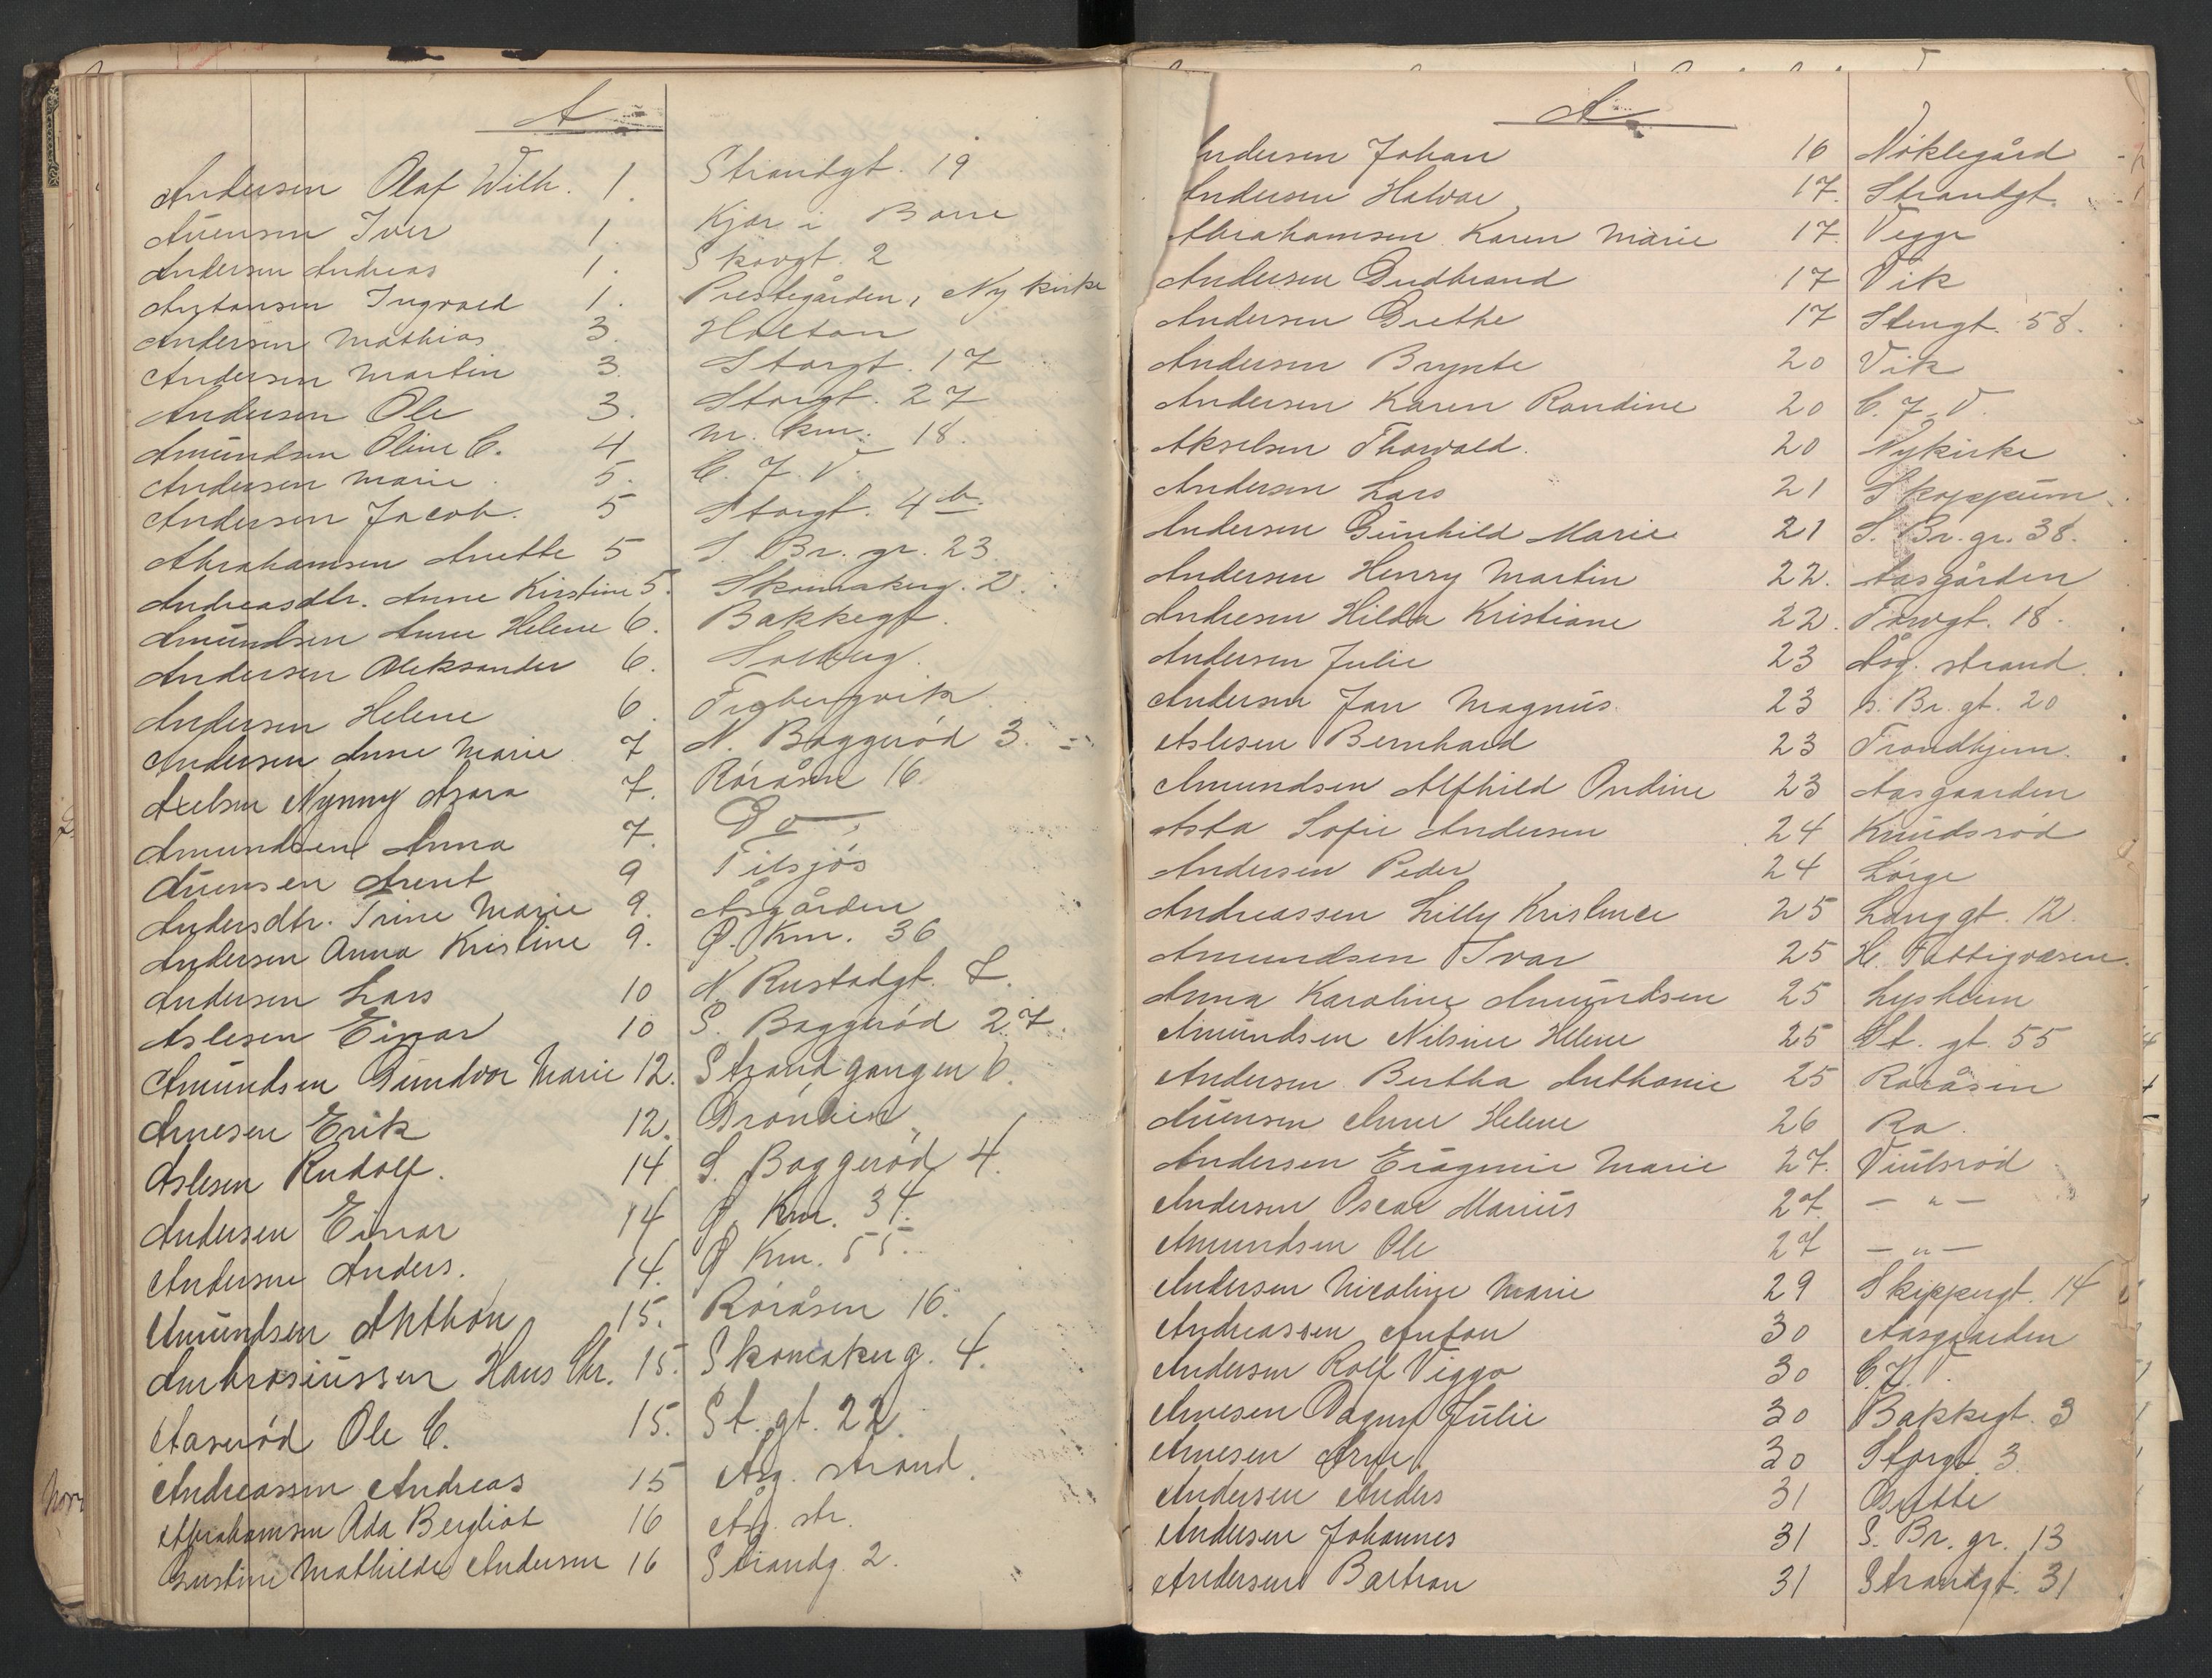 A
Andersen Olaf Wilh. 1. Strandgt. 19
Auensen Iver 1. Kjær i Borre
Andersen Andreas 1. Skovgt. 2
Antonsen Ingvald 1. Prestegården, Nykirke
Andersen Mathias 3. Holtan
Andersen Martin 3. Storgt. 17
Andersen Ole 3. Storgt. 27
Amundsen Oline C. 4 m. km. 18.
Andersen Marie 5. C. J. V.
Andersen Jacob. 5 Storgt. 4 b.
Abrahamsen Anette 5 S. Br. gr. 23
Andreasdtr. Anne Kirstine 5. Skomakerg. 2.
Amundsen Anne Helene 6. Bakkegt.
Andersen Aleksander 6. Solberg.
Andersen Helene 6. Fegbergvik
Andersen Anne Marie 7 N. Baggerød 3.
Axelsen Nynny Asora 7. Røråsen 16
Amundsen Anna 7. Do
Auensen Arent 9 Tilsjøs
Andersdtr. Trine Marie 9. Åsgården
Andersen Anna Kristine 9. Ø. Km. 36
Andersen Lars 10 N. Rustadgt. 7.
Aslesen Einar 10 S. Baggerød 27.
Amundsen Gundvor Marie 12. Strandgangen 6.
Arnesen Erik 12. Grønlien
Aslesen Rudolf. 14 S. Baggerød 4.
Andersen Einar 14 Ø. Km. 34.
Andersen Anders. 14. Ø Km. 55.
Amundsen Anthon 15. Røråsen 16.
Ambrosiussen Hans Chr. 15. Skomakerg. 4.
Aaserød Ole C. 15. St. gt. 22.
Andreassen Andreas 15 Åsg. strand.
Abrahamsen Ada Bergliot 16 Åsg. str.
Gustine Mathilde Andersen 16 Strandg. 2.
A
Andersen Johan 16 Nøklegård
Andersen Halvar 17. Strandgt.
Abrahamsen Karen Marie 17. Vegge
Andersen Gudbrand 17 Vik
Andersen Grethe 17 Stengt. 58.
Andersen Brynte 20 Vik
Andersen Karen Randine 20 C. J. V.
Akselsen Thorvald. 20 Nykirke
Andersen Lars 21 Skoppum
Andersen Gunhild Marie 21 S. Br. gr. 38.
Andersen Henry Martin 22. Aasgården
Andresen Hilda Kristiane 22. Torvgt. 18.
Andersen Julie 23 Åsg. strand.
Andersen Jan Magnus. 23 S. Br. gt. 20
Aslesen Bernhard 23 Trondhjem.
Amundsen Alfhild Ondine 23 Aasgaarden
Asta Sofie Andersen 24 Knudsrød
Andersen Peder 24 Lørge
Andreassen Lilly Kristence 25 Langgt. 12.
Amundsen Ivar 25 H. Fattigvæsen.
Anna Karoline Amundsen 25 Lysheim
Amundsen Nilsine Helene 25 St. gt. 55
Andersen Bertha Anthonie 25 Røråsen
Auensen Anne Helene 26 Ra.
Andersen Eugenie Marie 27. Viulsrød
Andersen Oscar Marius 27. — " —
Amundsen Ole 27 — " —
Andersen Nicoline Marie 29 Skippergt. 14
Andreassen Anton 30 Aasgaarden
Andersen Rolf Viggo 30 C. J. V.
Arnesen Dagny Julie 30 Bakkegt. 3
Arnesen Arne. 30 Storgt. 3.
Andersen Anders 31 Grette
Andersen Johannes 31 S. Br. gr. 13
Andersen Bartran 31 Strandgt. 31